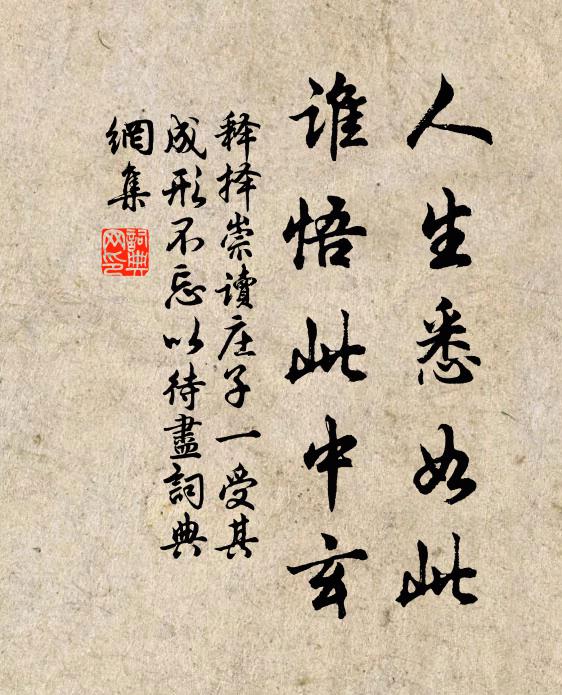 人生悉如此
谁悟此中玄
释择崇讀庄子一受其
成形不忘以待盡詞典
網集
詞典
网印